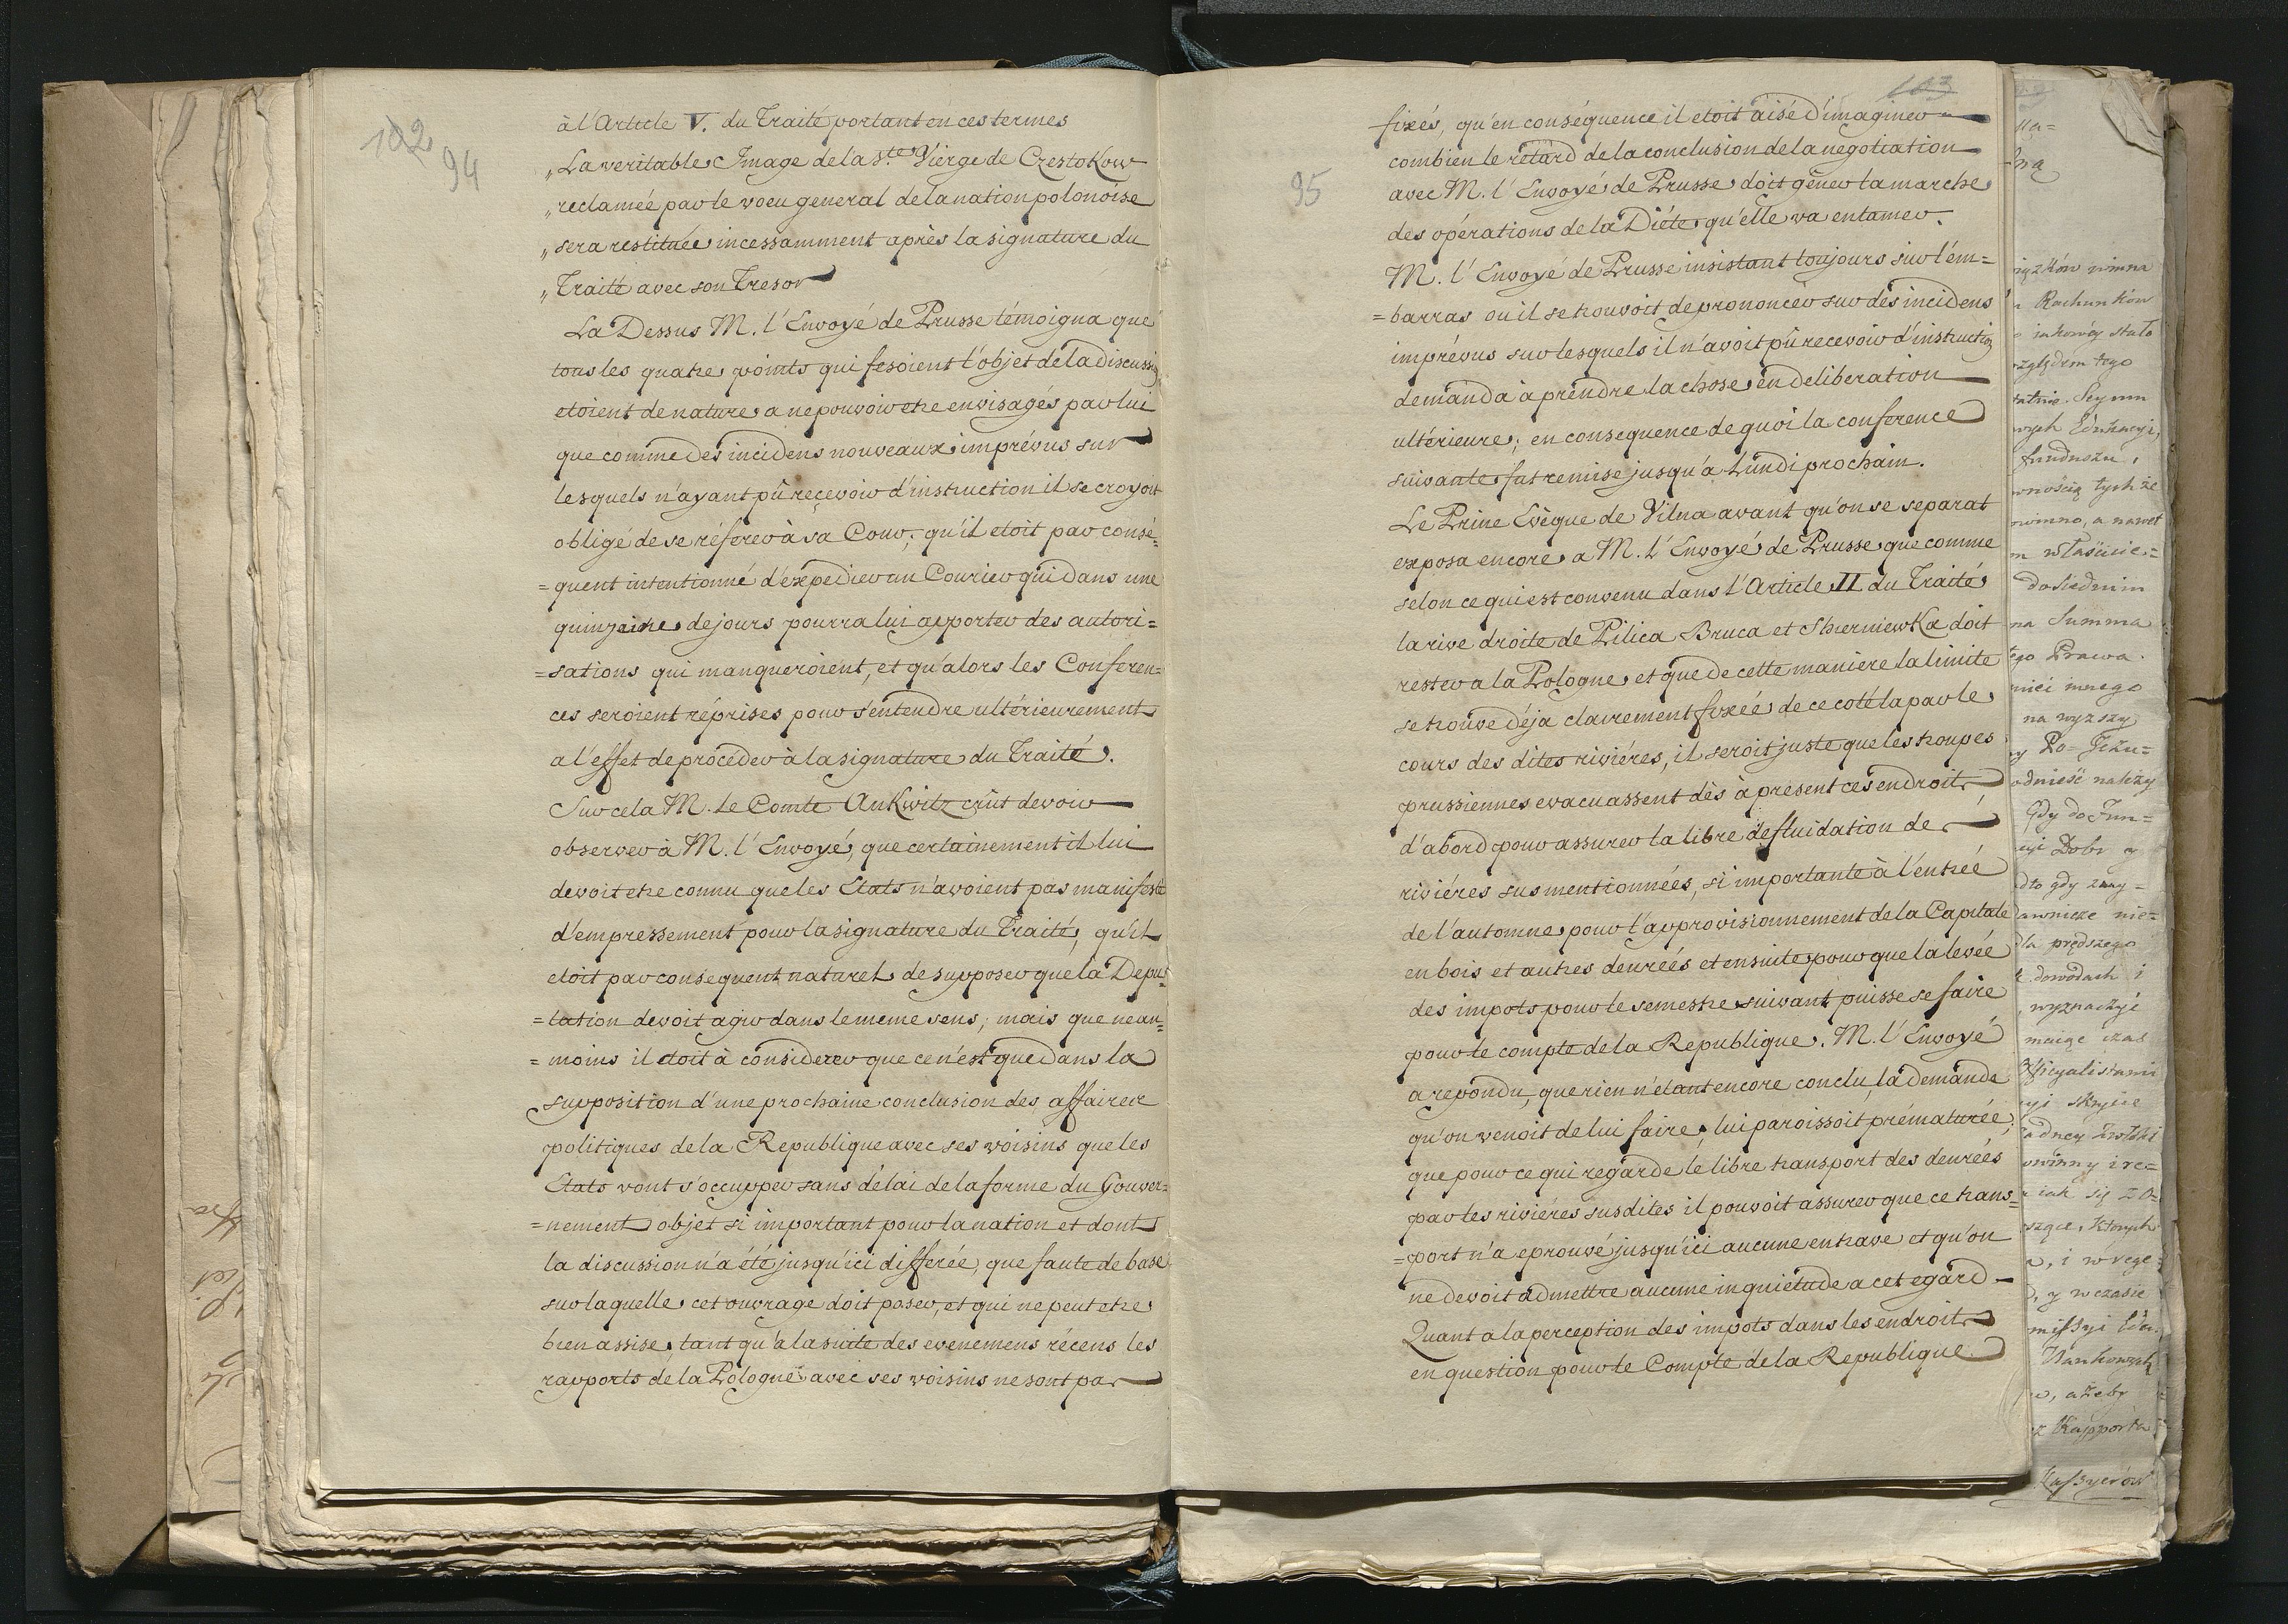 102
94
à l'Article V. du Traité portant en ces termes
„La veritable Image de la S.te Vierge de Czestokow
„reclameé par le voeu general de la nation polonoise
„sera restituée incessamment après la signature du
„Traité avec son Tresor
La Dessus M. l'Envoyé de Prusse témoigna que
tous les quatre points qui fesoient l'objet de la discussi
etoient de nature a ne pouvoir etre envisagés par lui
que comme des incidens nouveaux imprévus sur
lesquels n'ayant pû reçevoir d'instruction il se croyoit
obligé de se réferer à sa Cour, qu'il etoit par consé=
=quent intentionné d'expedier un Courier qui dans une
quinzaine de jours pourra lui apporter des autori=
=sations qui manqueroient, et qu'alors les Conferen=
ces seroient réprises pour s'entendre ultérieurement
a l'effet de procéder à la signature du Traité.
Sur cela M. le Comte AnKwitz crût devoir
observer à M. l'Envoyé, que certainement il lui
devoit etre connu que les Etats n'avoient pas manifesté
d'empressement pour la signature du Traité, qu'il
etoit par consequent naturel de supposer que la Depu=
=tation devoit agir dans le meme sens; mais que nean=
=moins il etoit à considerer que ce n'est que dans la
supposition d'une prochaine conclusion des affaires
politiques de la Republique avec ses voisins que les
Etats vont s'occupper sans délai de la forme du Gouver=
=nement objet si important pour la nation et dont
la discussion n'a été jusqu'ici differée, que faute de base
sur laquelle cet ouvrage doit poser, et qui ne peut etre
bien assise, tant qu'a la suite des evenemens récens les
rapports de la Pologne avec ses voisins ne sont pas
103
95
fixés, qu'en conséquence il etoit aisé d'imaginer
combien le retard de la conclusion de la negotiation
avec M. l'Envoyé de Prusse doit gêner la marche
des opérations de la Diéte qu'elle va entamer.
M. l'Envoyé de Prusse insistant toujours sur l'em=
=barras ou il se trouvoit de prononcer sur des incidens
imprévus sur lesquels il n'avoit pû recevoir d'instruction
demanda à prendre la chose en deliberation
ultérieure; en consequence de quoi la conference
suivante fut remise jusqu'a Lundi prochain.
Le Prine Evêque de Vilna avant qu'on se separat
exposa encore a M. l'Envoyé de Prusse que comme
selon ce qui est convenu dans l'Article II du Traité
la rive droite de Pilica Bruca et SkierniewKa doit
rester a la Pologne et que de cette maniere la limite
se trouve déja clairement fixeé de ce coté la par le
cours des dites riviéres, il seroit juste que les troupes
prussiennes evacuassent dès à présent ces endroits
d'abord pour assurer la libre defluidation de
riviéres susmentionnées, si importante à l'entreé
de l'automne pour l'approvisionnement de la Capitale
en bois et autres denreés et ensuite pour que la levée
des impots pour le semestre suivant puisse se faire
pour le compte de la Republique. M. l'Envoyé
a repondu, que rien n'étant encore conclu, la demande
qu'on venoit de lui faire, lui paroissoit prématurée;
que pour ce qui regarde le libre transport des denreés
par les riviéres susdites il pouvoit assurer que ce trans=
=port n'a eprouvé jusqu'ici aucune entrave et qu'on
ne devoit admettre aucune inquiétude a cet egard
Quant a la perception des impots dans les endroits
en question pour le Compte de la Republique
Rachunków
jakowey stało
względem tego
Seymu
Edukacyi,
funduszu,
tychże
a nawet
Summa
Prawa.
innego
na wyższy
należy
Gdy do Fun=
Dobr
gdy
prędszego
dowodach i
czas
się
w czasie
ażeby
Kassyerów